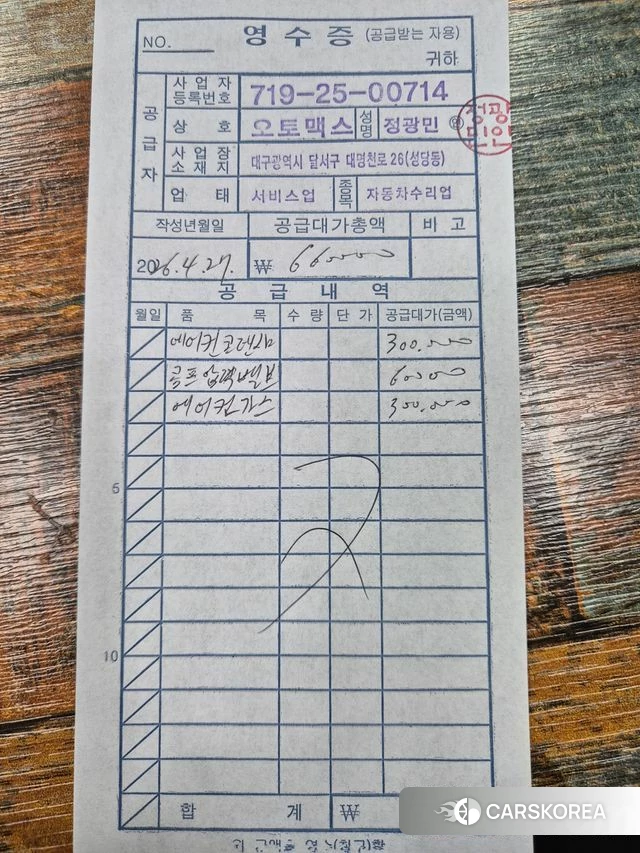 NO. 영 수 증 (공급받는 자용)
귀하
공급자
사업자등록번호 719-25-00714
상 호 오토맥스 성명 정광민 ㊞
정광민인
사업장소재지 대구광역시 달서구 대명천로 26(성당동)
업 태 서비스업 종목 자동차수리업
작성년월일 공급대가총액 비 고
2026.4.27. ₩ 660000
공 급 내 역
월일 품 목 수 량 단 가 공급대가(금액)
에어컨 콘덴샤 300.000
콤프 압력밸브 60000
에어컨가스 300.000
5
10
합 계 ₩
CARSKOREA